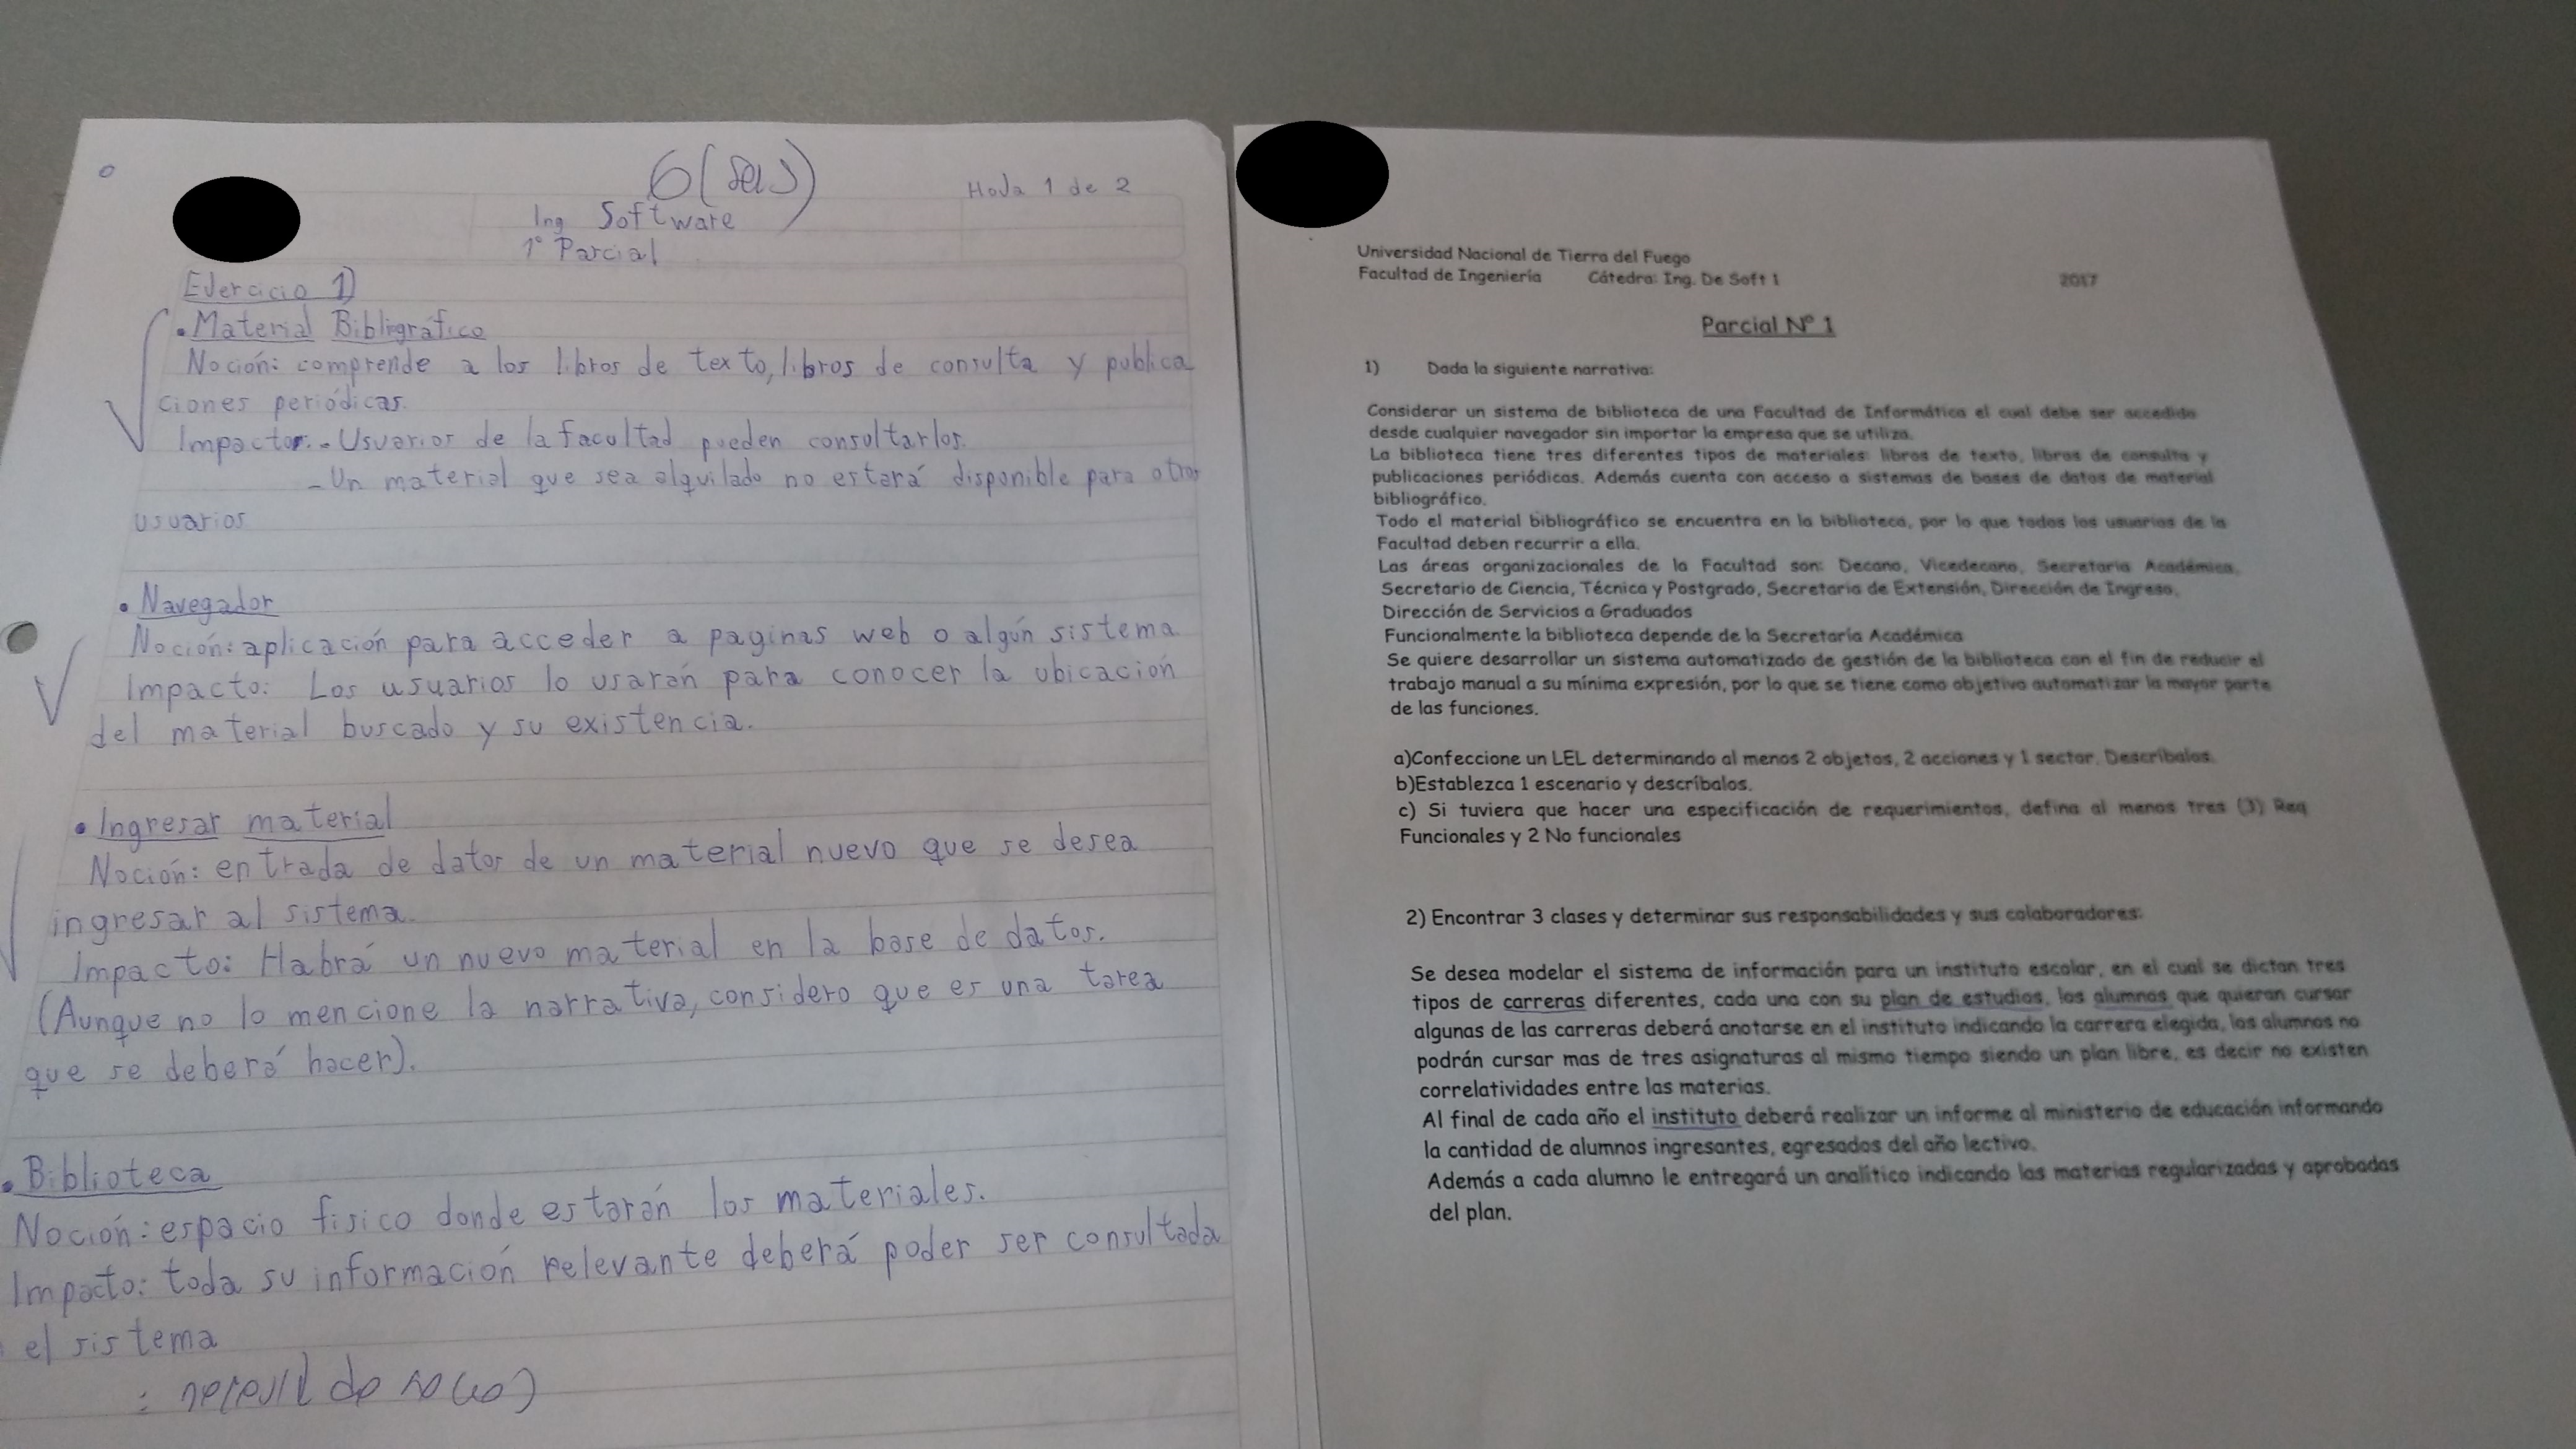 6 (seis)
Hoja 1 de 2
Ing Software
1° Parcial
Ejercicio 1)
• Material Bibligráfico
Noción: comprende a los libros de texto, libros de consulta y publica
ciones periódicas.
Impacto: - Usuarios de la facultad pueden consultarlos.
- Un material que sea alquilado no estará disponible para otros
usuarios
• Navegador
Noción: aplicación para acceder a paginas web o algún sistema
Impacto: Los usuarios lo usarán para conocer la ubicación
del material buscado y su existencia.
• Ingresar material
Noción: entrada de datos de un material nuevo que se desea
ingresar al sistema.
Impacto: Habrá un nuevo material en la base de datos.
(Aunque no lo mencione la narrativa, considero que es una tarea
que se deberá hacer).
• Biblioteca
Noción: espacio fisico donde estarán los materiales.
Impacto: toda su información relevante deberá poder ser consultada
el sistema
Universidad Nacional de Tierra del Fuego
Facultad de Ingeniería Cátedra: Ing. De Soft 1 2017
Parcial Nº 1
1) Dada la siguiente narrativa:
Considerar un sistema de biblioteca de una Facultad de Informática el cual debe ser accedido
desde cualquier navegador sin importar la empresa que se utiliza.
La biblioteca tiene tres diferentes tipos de materiales: libros de texto, libros de consulta y
publicaciones periódicas. Además cuenta con acceso a sistemas de bases de datos de material
bibliográfico.
Todo el material bibliográfico se encuentra en la biblioteca, por lo que todos los usuarios de la
Facultad deben recurrir a ella.
Las áreas organizacionales de la Facultad son: Decano, Vicedecano, Secretaria Académica,
Secretario de Ciencia, Técnica y Postgrado, Secretaria de Extensión, Dirección de Ingreso,
Dirección de Servicios a Graduados
Funcionalmente la biblioteca depende de la Secretaría Académica
Se quiere desarrollar un sistema automatizado de gestión de la biblioteca con el fin de reducir el
trabajo manual a su mínima expresión, por lo que se tiene como objetivo automatizar la mayor parte
de las funciones.
a)Confeccione un LEL determinando al menos 2 objetos, 2 acciones y 1 sector. Descríbalos.
b)Establezca 1 escenario y descríbalos.
c) Si tuviera que hacer una especificación de requerimientos, defina al menos tres (3) Req
Funcionales y 2 No funcionales
2) Encontrar 3 clases y determinar sus responsabilidades y sus colaboradores:
Se desea modelar el sistema de información para un instituto escolar, en el cual se dictan tres
tipos de carreras diferentes, cada una con su plan de estudios, los alumnos que quieran cursar
algunas de las carreras deberá anotarse en el instituto indicando la carrera elegida, los alumnos no
podrán cursar mas de tres asignaturas al mismo tiempo siendo un plan libre, es decir no existen
correlatividades entre las materias.
Al final de cada año el instituto deberá realizar un informe al ministerio de educación informando
la cantidad de alumnos ingresantes, egresados del año lectivo.
Además a cada alumno le entregará un analítico indicando las materias regularizadas y aprobadas
del plan.